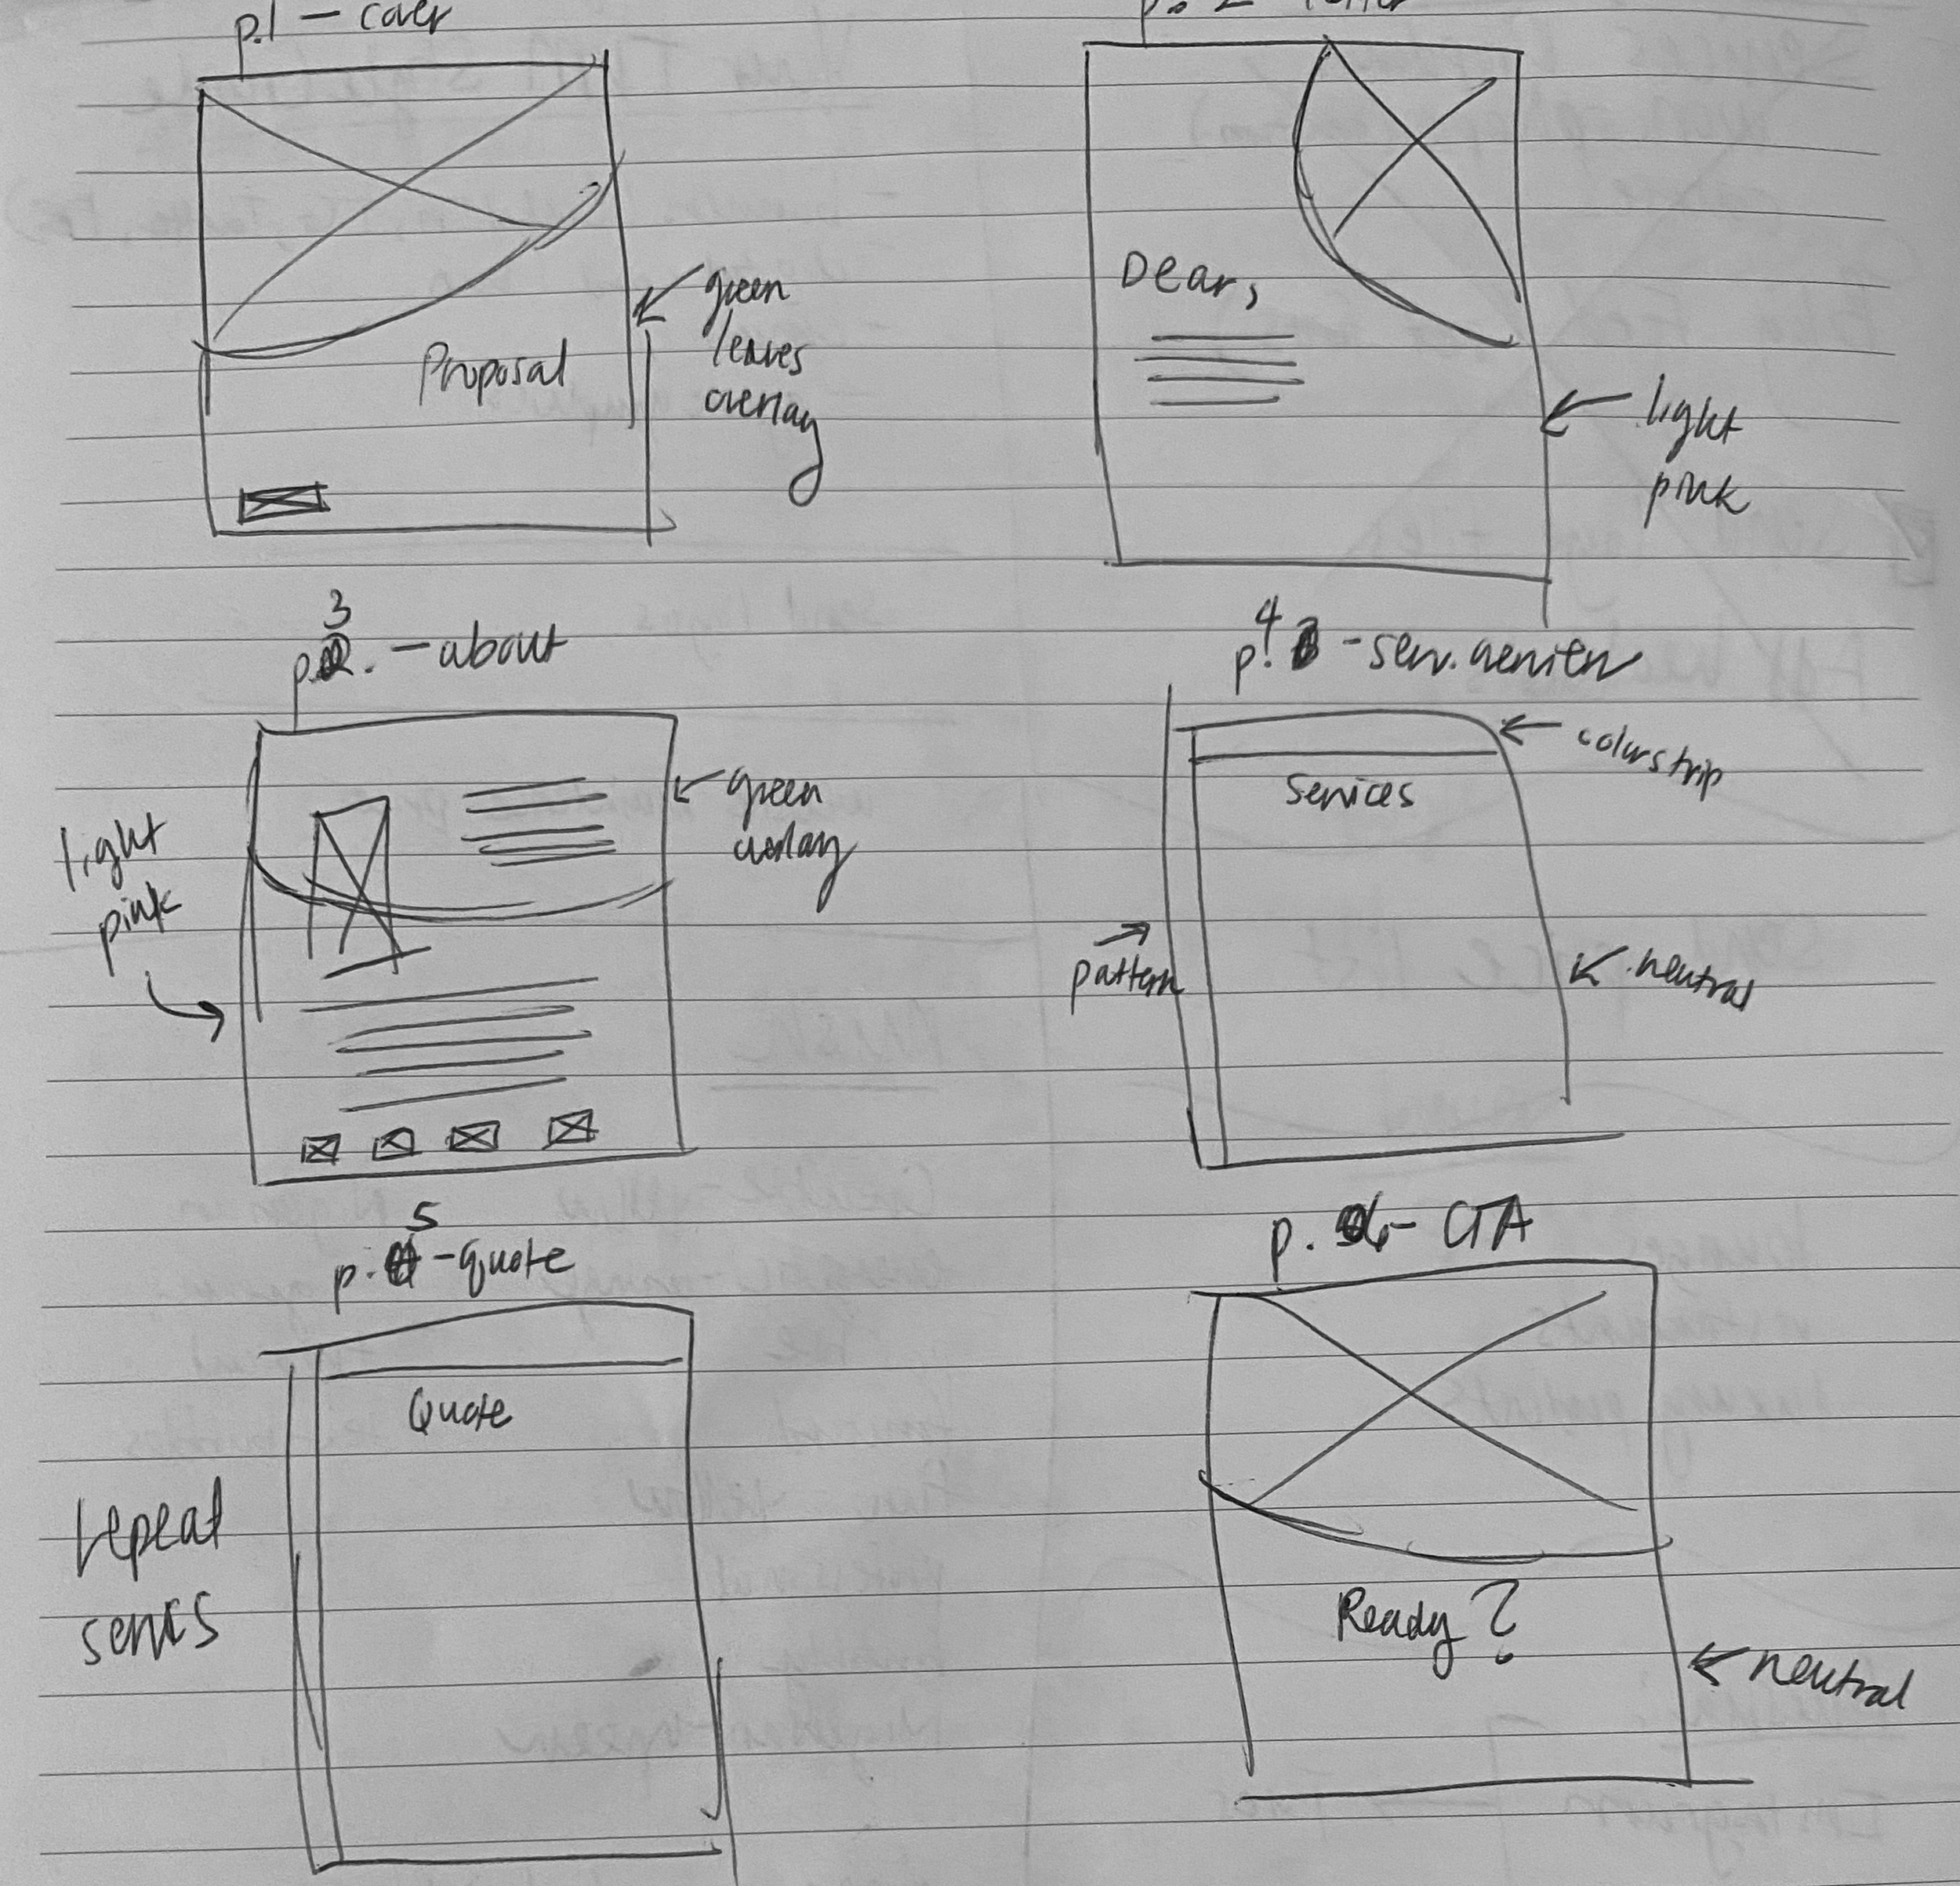 p.1 – cover
p. 2 – letter
Proposal
green
leaves
overlay
Dear,
light
pink
3
p. – about
light
pink
green
overlay
4
p. – serv.
color strip
Services
pattern
neutral
5
p. – quote
Quote
repeat
p. 6 – CTA
Ready?
neutral